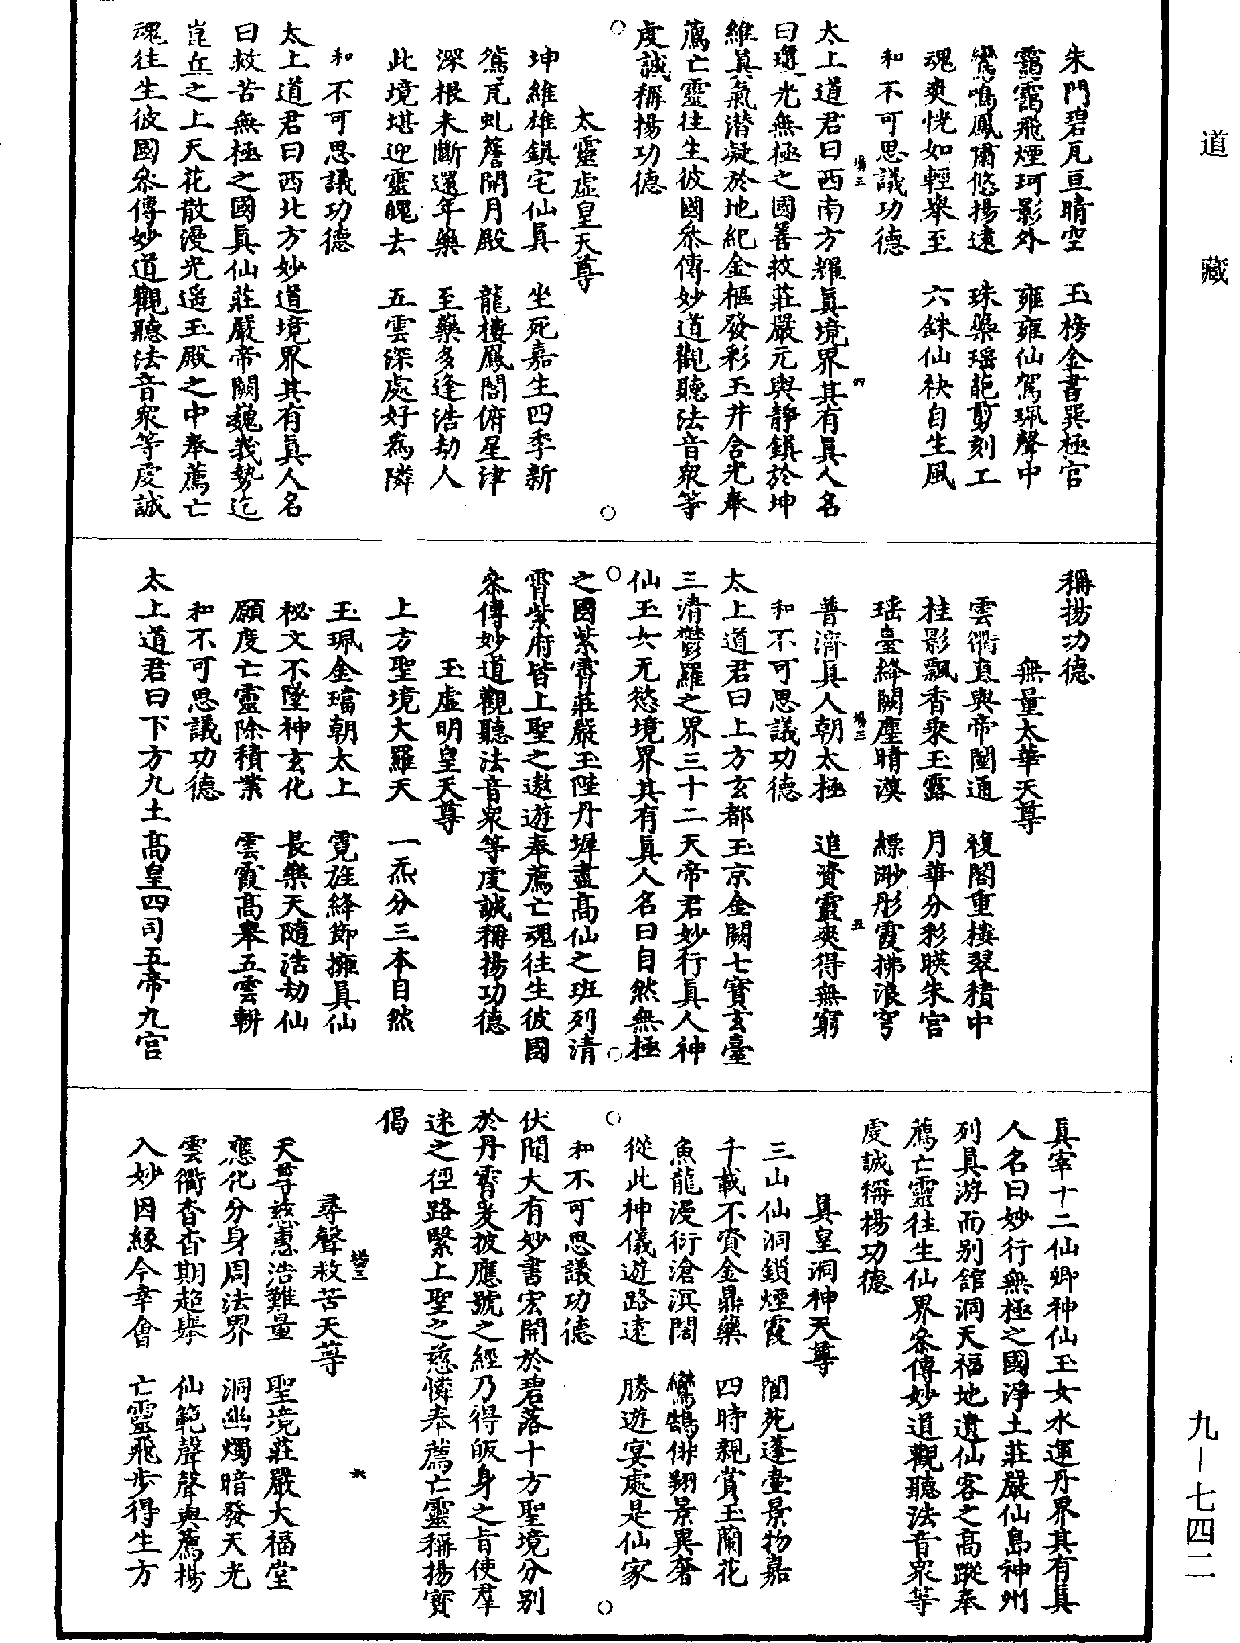 道藏
朱門碧瓦亘晴空　玉榜金書巽極宮
靄靄飛煙珂影外　雍雍仙駕珮聲中
鸞鳴鳳嘯悠揚遠　珠蘂瑶葩剪刻工
魂爽恍如輕舉至　六銖仙袂自生風
和不可思議功德
太上道君曰西南方耀真境界其有真人名
曰璣光無極之國善救莊嚴元輿靜鎮於坤
維真氣潜凝於地紀金樞發彩玉井含光奉
薦亡靈往生彼國叅傳妙道觀聽法音衆等
虔誠稱揚功德
太靈虚皇天尊
坤維雄鎮宅仙真　坐死嘉生四季新
鴛瓦虬簷開月殿　龍樓鳳閣俯星津
深根未斷還年藥　至藥多逢浩劫人
此境堪迎靈魄去　五雲深處好為隣
和不可思議功德
太上道君曰西北方妙道境界其有真人名
曰救苦無極之國真仙莊嚴帝闕巍峩勢迄
崑丘之上天花散漫光遥玉殿之中奉薦亡
魂往生彼國叅傳妙道觀聽法音衆等虔誠
稱揚功德
無量太華天尊
雲衢直與帝闉通　複閣重樓翠積中
桂影飄香乘玉露　月華分彩暎朱宮
瑶臺絳闕塵晴漠　縹渺彤霞拂浪穹
普濟真人朝太極　追資靈爽得無窮
和不可思議功德
太上道君曰上方玄都玉京金闕七寶玄臺
三清鬱羅之界三十二天帝君妙行真人神
仙玉女无慾境界其有真人名曰自然無極
之國紫霄莊嚴玉陛丹墀盡高仙之班列清
霄紫府皆上聖之遨遊奉薦亡魂往生彼國
叅傳妙道觀聽法音衆等虔誠稱揚功德
玉虚明皇天尊
上方聖境大羅天　一炁分三本自然
玉珮金璫朝太上　霓旌絳節擁真仙
秘文不墜神玄化　長樂天隨浩劫仙
願度亡靈除積業　雲霞高舉五雲軿
和不可思議功德
太上道君曰下方九土高皇四司五帝九宮
真宰十二仙卿神仙玉女水運丹界其有真
人名曰妙行無極之國淨土莊嚴仙島神州
列真游而别館洞天福地遺仙客之高蹤奉
薦亡靈往生仙界叅傳妙道觀聽法音衆等
虔誠稱揚功德
真皇洞神天尊
三山仙洞鎖煙霞　閬苑蓬臺景物嘉
千載不資金鼎藥　四時親賞玉蘭花
魚龍漫衍滄溟闊　鸞鵠俳翔景異奢
從此神儀遊路遠　勝遊宴處是仙家
和不可思議功德
伏聞大有妙書宏開於碧落十方聖境分别
於丹霄爰披應號之經乃得皈身之旨使羣
迷之徑路繄上聖之慈憐奉薦亡靈稱揚寶
偈
尋聲救苦天尊
天尊慈惠浩難量　聖境莊嚴大福堂
應化分身周法界　洞幽燭暗發天光
雲衢杳杳期超舉　仙範聲聲與薦揚
入妙因緣今幸會　亡靈飛步得生方
九—七四二